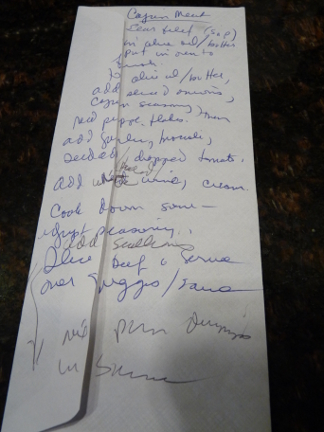 Cajun Meat
Sear filet (S & P)
in olive oil/butter
put in oven to
finish
To olive oil/butter,
add sliced onions,
Cajun seasoning,
red pepper flakes. Then
add garlic,
seeded, chopped tomato.
add wine, cream.
Cook down some -
adjust seasoning.
add scallions
Slice beef & serve
over /sauce
mix parm
in